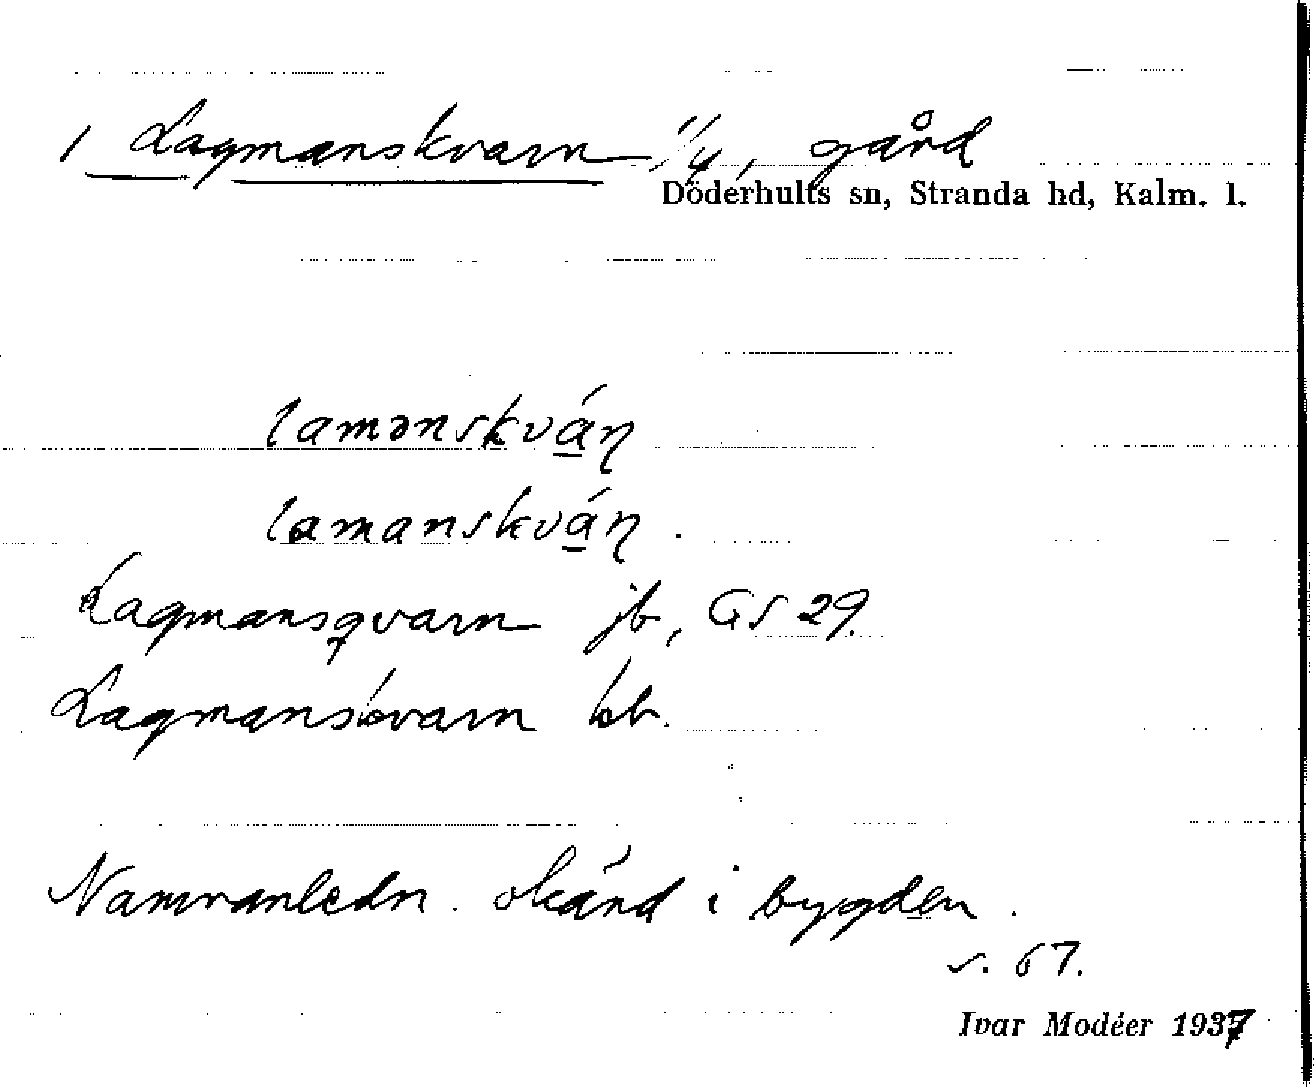 1 Lagmanskvarn 1/4, gård
Döderhults sn, Stranda hd, Kalm. l.
lamənskvá̱ɳ
lamanskvá̱ɳ.
Lagmansqvarn jb, GS 29.
Lagmanskvarn kb.
Namnanledn. okänd i bygden.
s. 67.
Ivar Modéer 1937